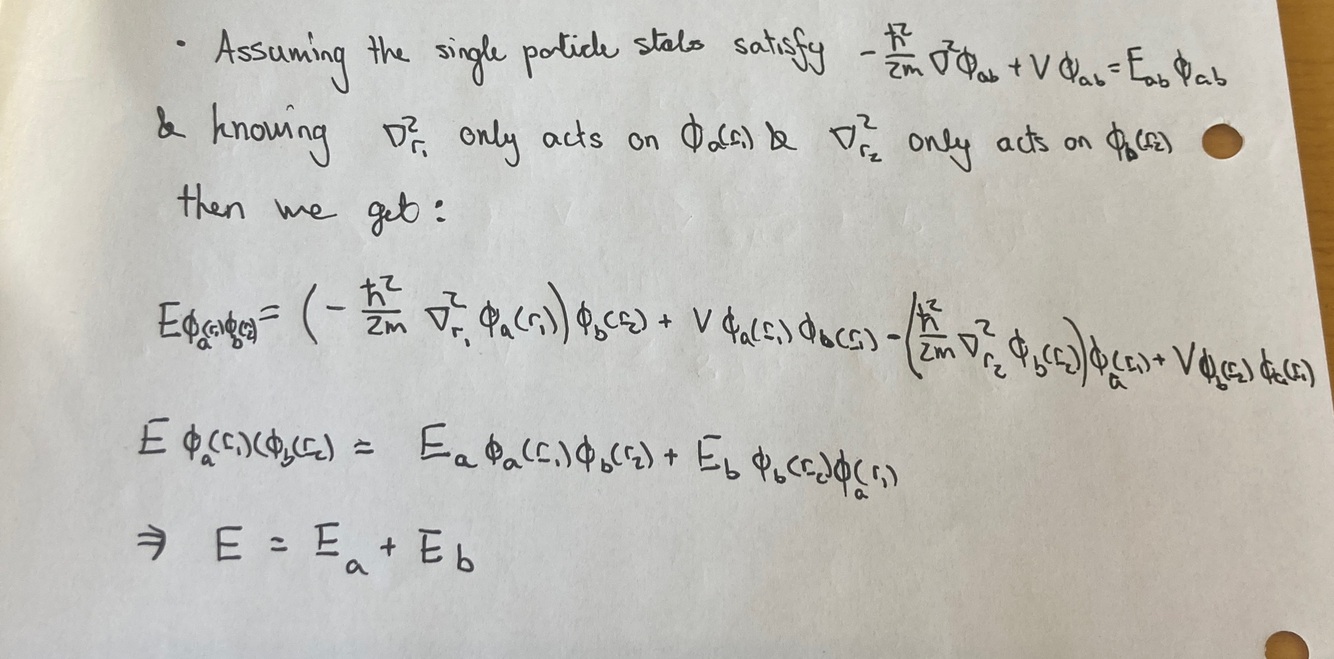 • Assuming the single particle states satisfy -ħ²/2m ∇²ϕab + V ϕab = Eab ϕab
& knowing ∇²r₁ only acts on ϕa(r₁) & ∇²r₂ only acts on ϕb(r₂)
then we get:
Eϕa(r₁)ϕb(r₂) = (-ħ²/2m ∇²r₁ ϕa(r₁))ϕb(r₂) + V ϕa(r₁)ϕb(r₂) - (ħ²/2m ∇²r₂ ϕb(r₂))ϕa(r₁) + Vϕb(r₂)ϕa(r₁)
E ϕa(r₁)(ϕb(r₂) = Ea ϕa(r₁)ϕb(r₂) + Eb ϕb(r₂)ϕa(r₁)
⇒ E = Ea + Eb